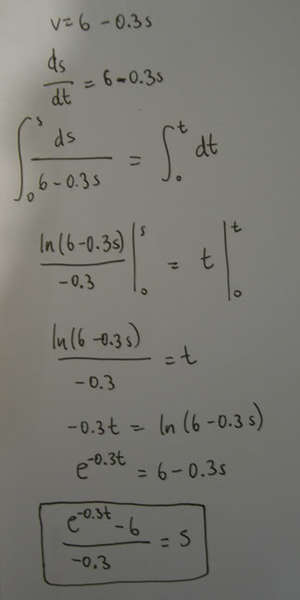 v=6-0.3s
ds/dt = 6-0.3s
∫₀ˢ ds/(6-0.3s) = ∫₀ᵗ dt
ln(6-0.3s)/-0.3 |₀ˢ = t |₀ᵗ
ln(6-0.3s)/-0.3 = t
-0.3t = ln(6-0.3s)
e^(-0.3t) = 6-0.3s
(e^(-0.3t) - 6)/-0.3 = s